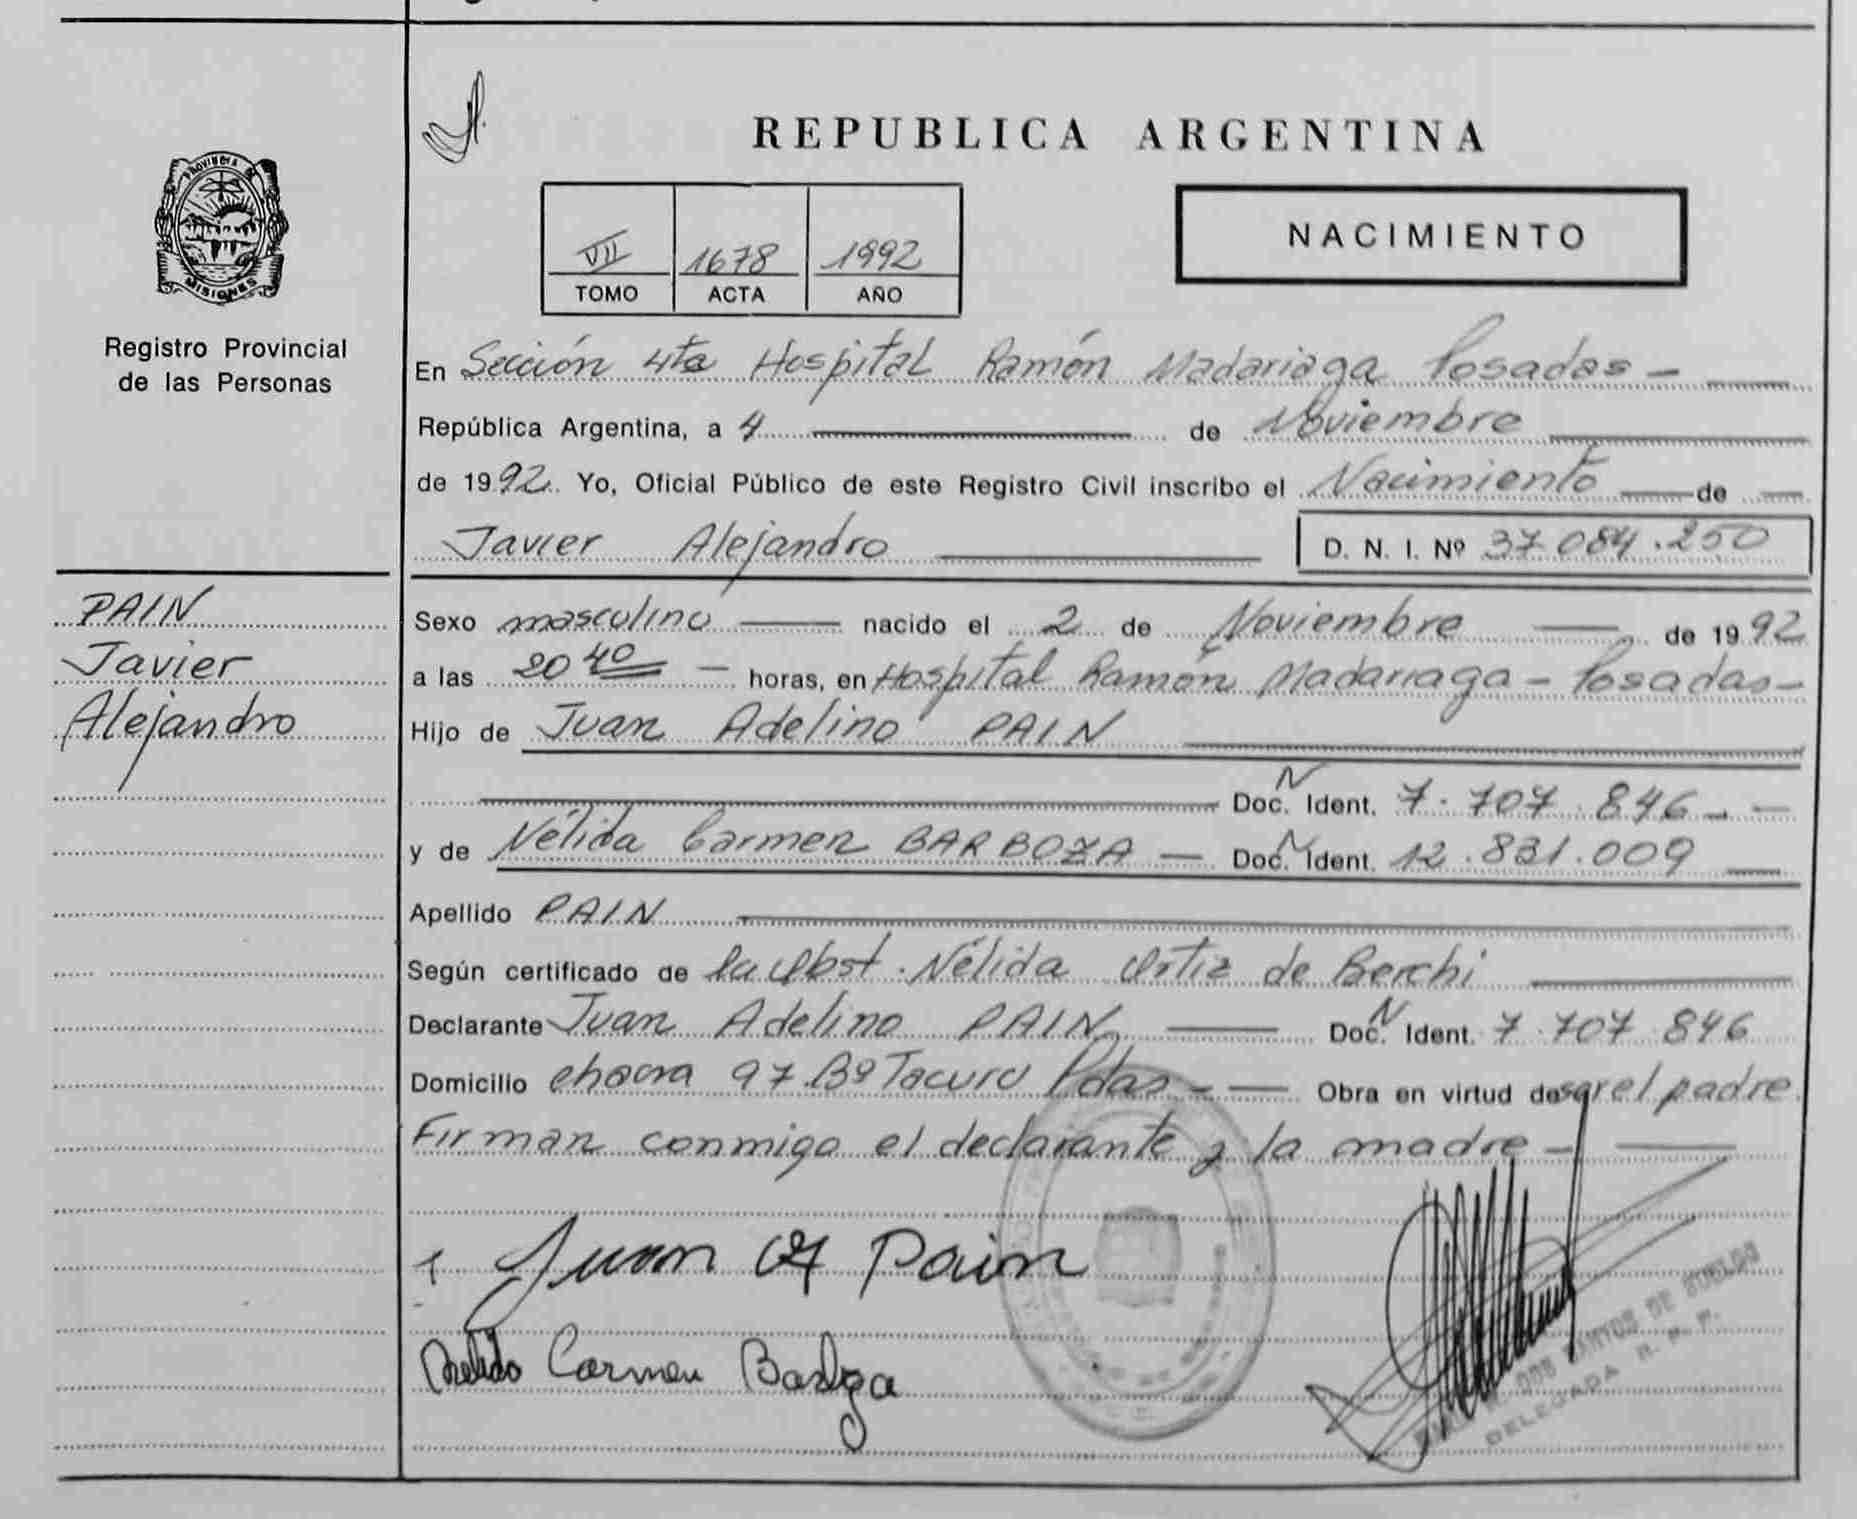 REPUBLICA ARGENTINA
PROVINCIA DE
MISIONES
Registro Provincial
de las Personas
VII 1678 1992
TOMO ACTA AÑO
NACIMIENTO
En Sección 4ta Hospital Ramón Madariaga Posadas -
República Argentina, a 4 de Noviembre
de 1992. Yo, Oficial Público de este Registro Civil inscribo el Nacimiento de
Javier Alejandro D. N. I. Nº 37.084.250
PAIN
Javier
Alejandro
Sexo masculino nacido el 2 de Noviembre de 1992
a las 20 40 - horas, en Hospital Ramón Madariaga - Posadas -
Hijo de Juan Adelino PAIN
Doc. N Ident. 7.707.846 -
y de Nélida Carmen BARBOZA - Doc. N Ident. 12.831.009
Apellido PAIN
Según certificado de la Obst. Nélida Ortiz de Berchi
Declarante Juan Adelino PAIN Doc. N Ident. 7.707.846
Domicilio chacra 97 Bº Tacurú Pdas - Obra en virtud de ser el padre.
Firman conmigo el declarante y la madre -
Juan A Pain
Nelida Carmen Barboza
DOS SANTOS DE SUELDO
DELEGADA R. P. P.